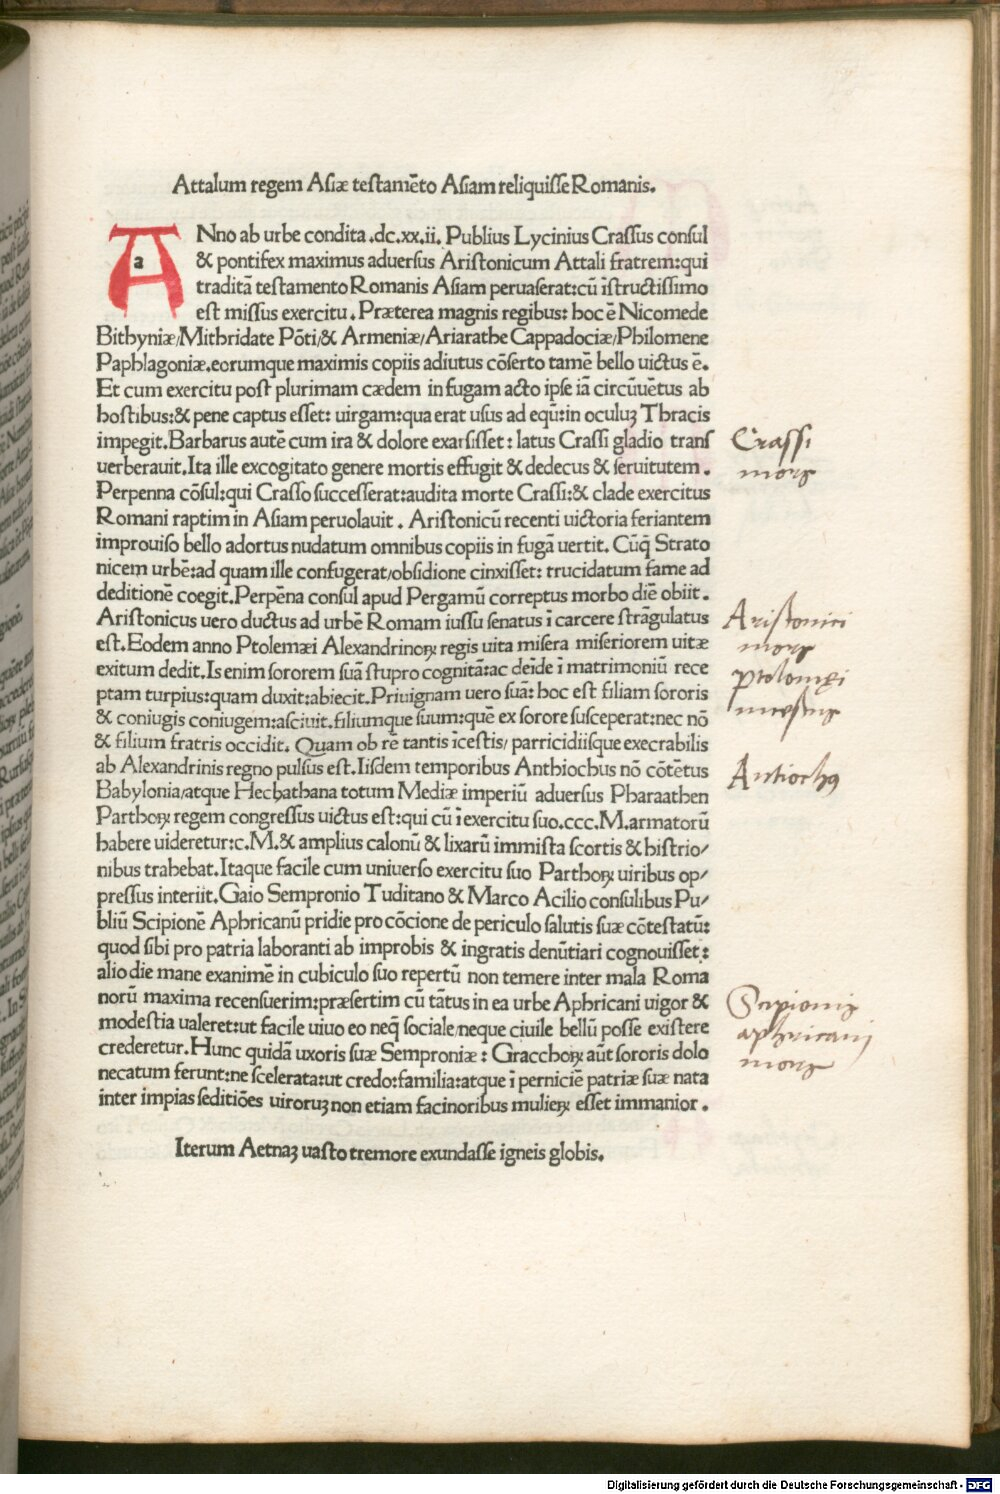 Attalum regem Asiæ testamēto Asiam reliquisse Romanis.
ANno ab urbe condita .dc.xx.ii. Publius Lycinius Crassus consul
a
& pontifex maximus aduersus Aristonicum Attali fratrem: qui
traditā testamento Romanis Asiam peruaserat: cū īstructissimo
est missus exercitu. Præterea magnis regibus: hoc ē Nicomede
Bithyniæ/Mithridate Pōti/& Armeniæ/Ariarathe Cappadociæ/Philomene
Paphlagoniæ.eorumque maximis copiis adiutus cōserto tamē bello uictus ē.
Et cum exercitu post plurimam cædem in fugam acto ipse iā circūuētus ab
hostibus:& pene captus esset: uirgam:qua erat usus ad equū:in oculuꝫ Thracis
impegit.Barbarus autē cum ira & dolore exarsisset: latus Crassi gladio trans
uerberauit.Ita ille excogitato genere mortis effugit & dedecus & seruitutem.
Perpenna cōsul:qui Crasso successerat:audita morte Crassi:& clade exercitus
Romani raptim in Asiam peruolauit. Aristonicū recenti uictoria feriantem
improuiso bello adortus nudatum omnibus copiis in fugā uertit. Cūq; Strato
nicem urbē:ad quam ille confugerat/obsidione cinxisset: trucidatum fame ad
deditionē coegit.Perpēna consul apud Pergamū correptus morbo diē obiit.
Aristonicus uero ductus ad urbē Romam iussu senatus ī carcere strāgulatus
est.Eodem anno Ptolemæi Alexandrinoꝝ regis uita misera miseriorem uitæ
exitum dedit.Is enim sororem suā stupro cognitā:ac deīde ī matrimoniū rece
ptam turpius:quam duxit:abiecit.Priuignam uero suā: hoc est filiam sororis
& coniugis coniugem:asciuit.filiumque suum:quē ex sorore susceperat:nec nō
& filium fratris occidit. Quam ob rē tantis īcestis/parricidiisque execrabilis
ab Alexandrinis regno pulsus est.Iisdem temporibus Anthiochus nō cōtētus
Babylonia/atque Hecbathana totum Mediæ imperiū aduersus Pharaathen
Parthoꝝ regem congressus uictus est:qui cū ī exercitu suo.ccc.M.armatorū
habere uideretur:c.M.& amplius calonū & lixarū immista scortis & histrio/
nibus trahebat.Itaque facile cum uniuerso exercitu suo Parthoꝝ uiribus op/
pressus interiit.Gaio Sempronio Tuditano & Marco Acilio consulibus Pu/
bliū Scipionē Aphricanū pridie pro cōcione de periculo salutis suæ cōtestatū:
quod sibi pro patria laboranti ab improbis & ingratis denūtiari cognouisset:
alio die mane exanimē in cubiculo suo repertū non temere inter mala Roma
norū maxima recensuerim:præsertim cū tātus in ea urbe Aphricani uigor &
modestia ualeret:ut facile uiuo eo neq; sociale/neque ciuile bellū posse existere
crederetur.Hunc quidā uxoris suæ Semproniæ: Gracchoꝝ aūt sororis dolo
necatum ferunt:ne scelerata:ut credo:familia:atque ī perniciē patriæ suæ nata
inter impias seditiōes uiroruꝫ non etiam facinoribus mulieꝝ esset immanior.
Iterum Aetnaꝫ uasto tremore exundasse igneis globis.
Crassi
mors
Aristonici
mors
ptolomęi
incestus
Antiochus
Scipionis
aphricani
mors
Digitalisierung gefördert durch die Deutsche Forschungsgemeinschaft - DFG